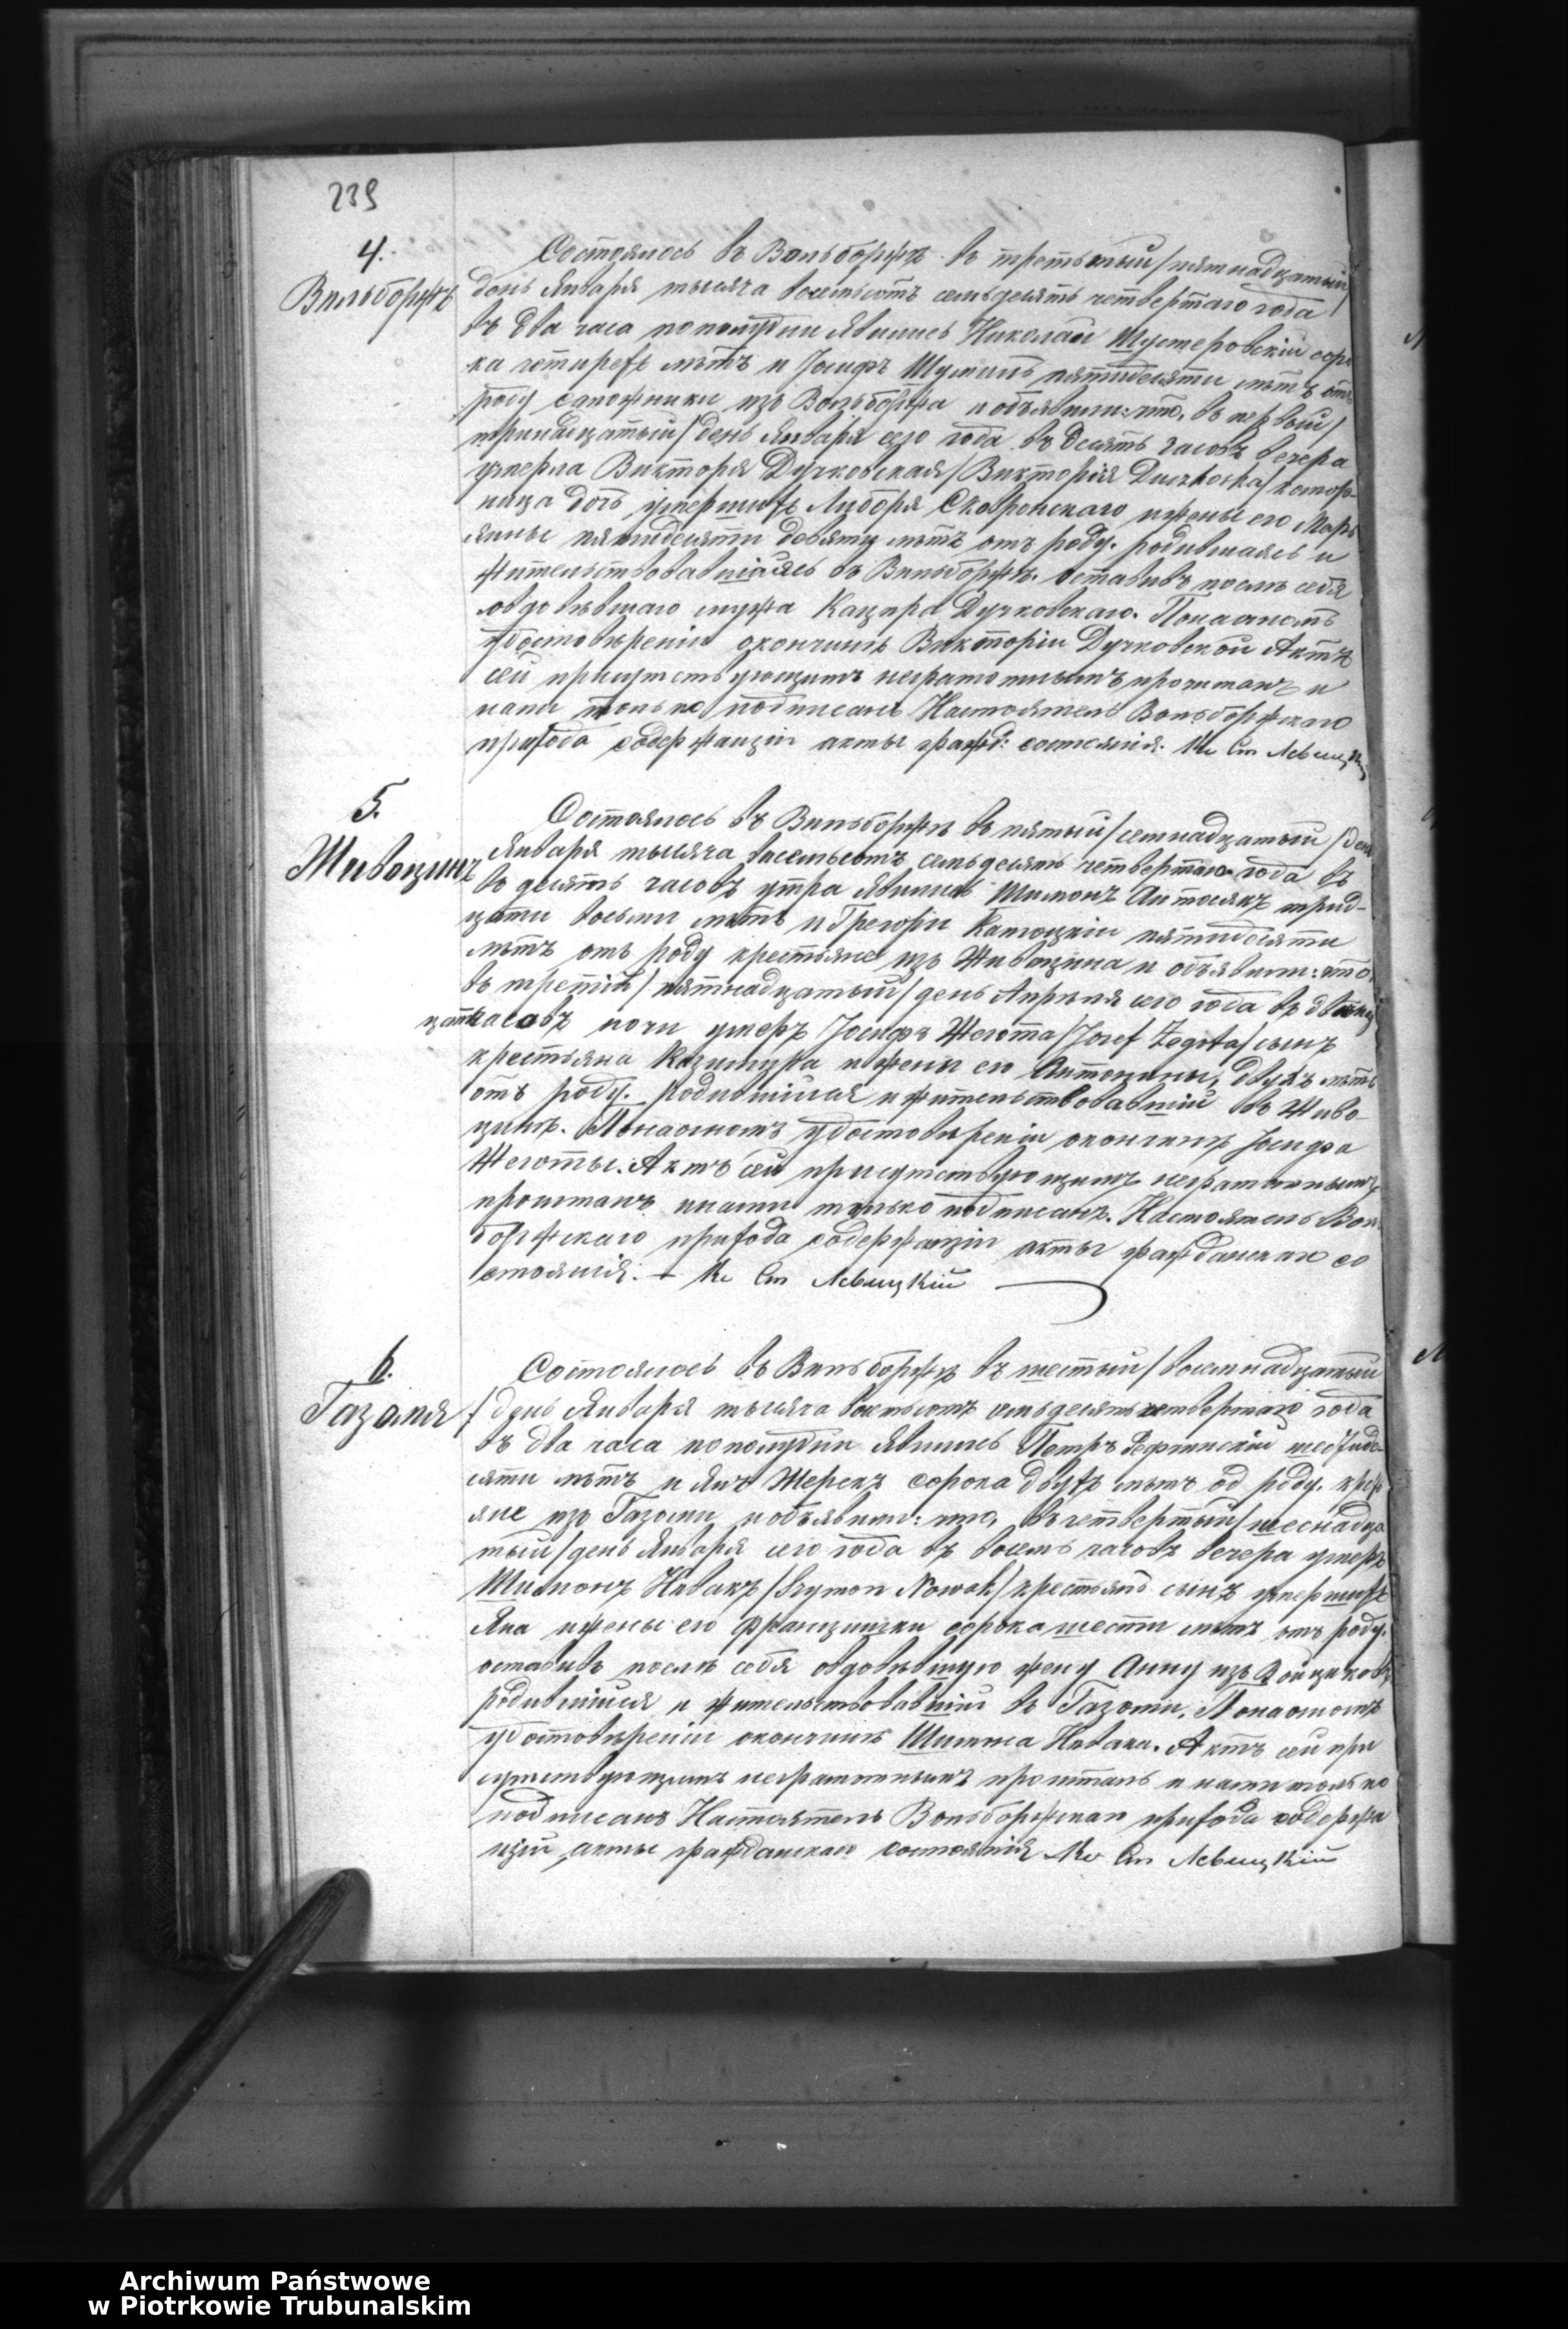 239
4.
Вольборжъ
Состоялось въ Вольборжѣ въ третьтый/пятнадцатый/
день Января тысяча восемьсотъ семьдесятъ четвертаго года
въ два часа пополудни явились Николай Шустеровскій соро
ка четырехъ лѣтъ и Іосифъ пятидесяти лѣтъ отъ
роду сапожники изъ Вольборжа и объявили: что, въ первый/
тринадцатый/день Января сего года въ десять часовъ вечера
умерла Викторя Дучковская/Викторія Duczkoska/
дочь умершихъ Либоря Скавронскаго и жены его Марь
янны пятидесяти девяти лѣтъ отъ роду. родившаясь и
жительствовавшаясь въ Вольборжѣ. оставивъ послѣ себя
овдовѣвшаго мужа Кацпра Дучковскаго. По наочномъ
удостовѣреніи окончинѣ Викторіи Дучковской Актъ
сей присутствующимъ неграмотнымъ прочитанъ и
нами только подписанъ Настоятель Вольборжскаго
прихода содержащій акты гражд: состоянія. Кс Ст Левицкій
5.
Живоцинъ
Состоялось въ Вольборжѣ въ пятый/семнадцатый/день
Января тысяча восемьсотъ семьдесятъ четвертаго года въ
въ десять часовъ утра явились Шимонъ Антосякъ трид-
цати восьми лѣтъ и Грегорій пятидесяти
лѣтъ отъ роду крестьяне изъ Живоцина и объявили: что,
въ третій/пятнадцатый/день Апрѣля сего года въ двѣнад
цать часовъ ночи умеръ Іосифъ Жегота/Josef Zegota/сынъ
крестьяна Казимира и жены его Антонины, двухъ лѣтъ
отъ роду. родившійся и жительствовавшій въ Живо
цинѣ. По наочномъ удостовѣреніи окончинѣ Іосифа
Жеготы. Актъ сей присутствующимъ неграмотнымъ
прочитанъ и нами только подписанъ. Настоятель Воль
боржскаго прихода содержащій акты гражданскаго со
стоянія. Кс Ст Левицкій
6.
Газомя
Состоялось въ Вольборжѣ въ шестый/восемнадцатый
/день Января тысяча восемьсотъ семьдесятъ четвертаго года
въ два часа пополудни явились Петръ шестиде-
сяти лѣтъ и Янъ Жерекъ сорока двухъ лѣтъ од роду. крестъ
яне изъ Газоми и объявили: что, въ четвертый/шеснадца
тый/день Января сего года въ восемь часовъ вечера умеръ
Шимонъ Новакъ/Szymon Nowak/крестьянъ сынъ умершихъ
Яна и жены его Францишки сорока шести лѣтъ отъ роду.
оставивъ послѣ себя овдовѣвшую жену Анну изъ Войциковъ,
родившійся и жительствовавшій въ Газоми. По наочномъ
удостовѣреніи окончинѣ Шимона Новака. Актъ сей при
сутствующимъ неграмотнымъ прочитанъ и нами только
подписанъ Настоятель Вольборжскаго прихода содержа
щій акты гражданскаго состоянія Кс Ст Левицкій
Archiwum Państwowe
w Piotrkowie Trubunalskim